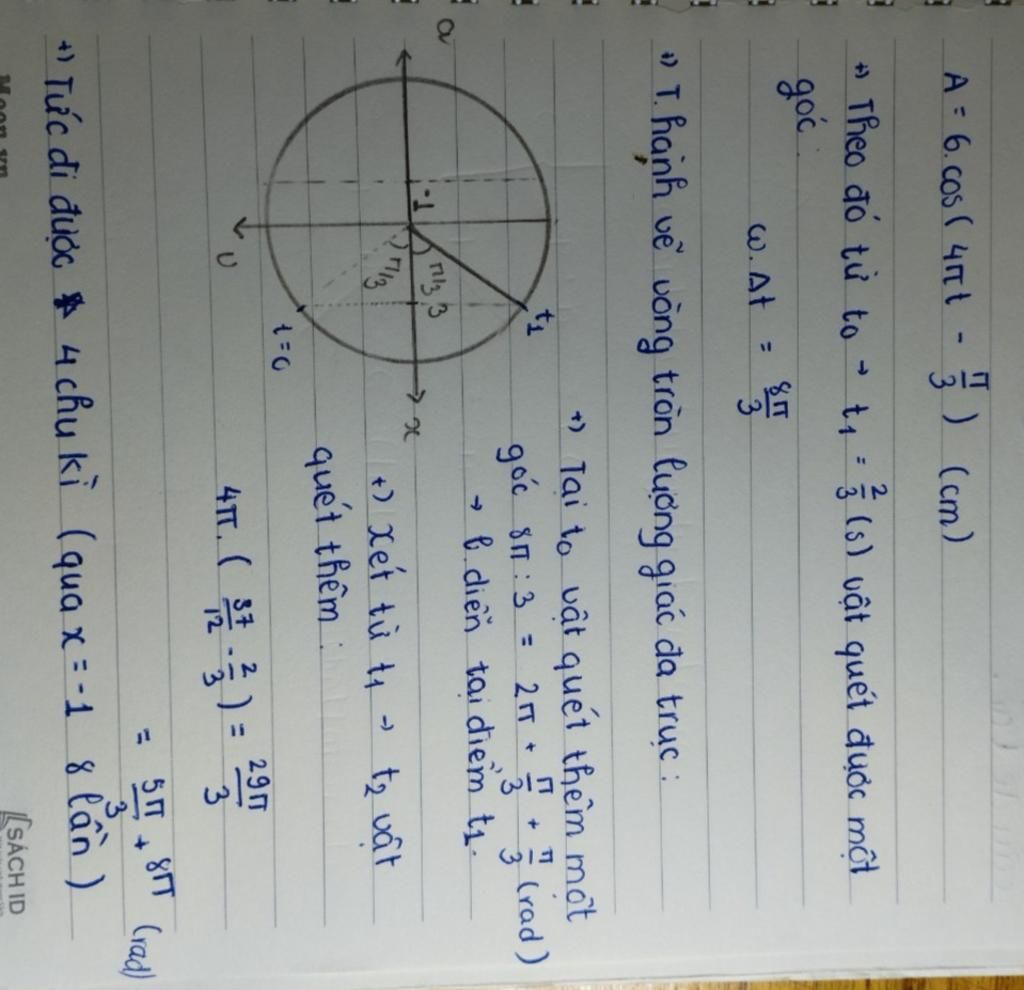 A = 6.cos( 4πt - π/3 ) (cm)
+) Theo đó từ t₀ → t₁ = 2/3 (s) vật quét được một
góc:
ω.Δt = 8π/3
+) T.hành vẽ vòng tròn lượng giác đa trục:
a
-1
π/3
3
π/3
t₁
x
v
t=0
+) Tại t₀ vật quét thêm một
góc 8π:3 = 2π + π/3 + π/3 (rad)
→ b.diễn tại điểm t₁.
+) xét từ t₁ → t₂ vật
quét thêm:
4π. ( 37/12 - 2/3 ) = 29π/3
= 5π/3 + 8π (rad)
+) Tức đi được 4 chu kì (qua x = -1 8 lần)
Moon.vn
SÁCH ID